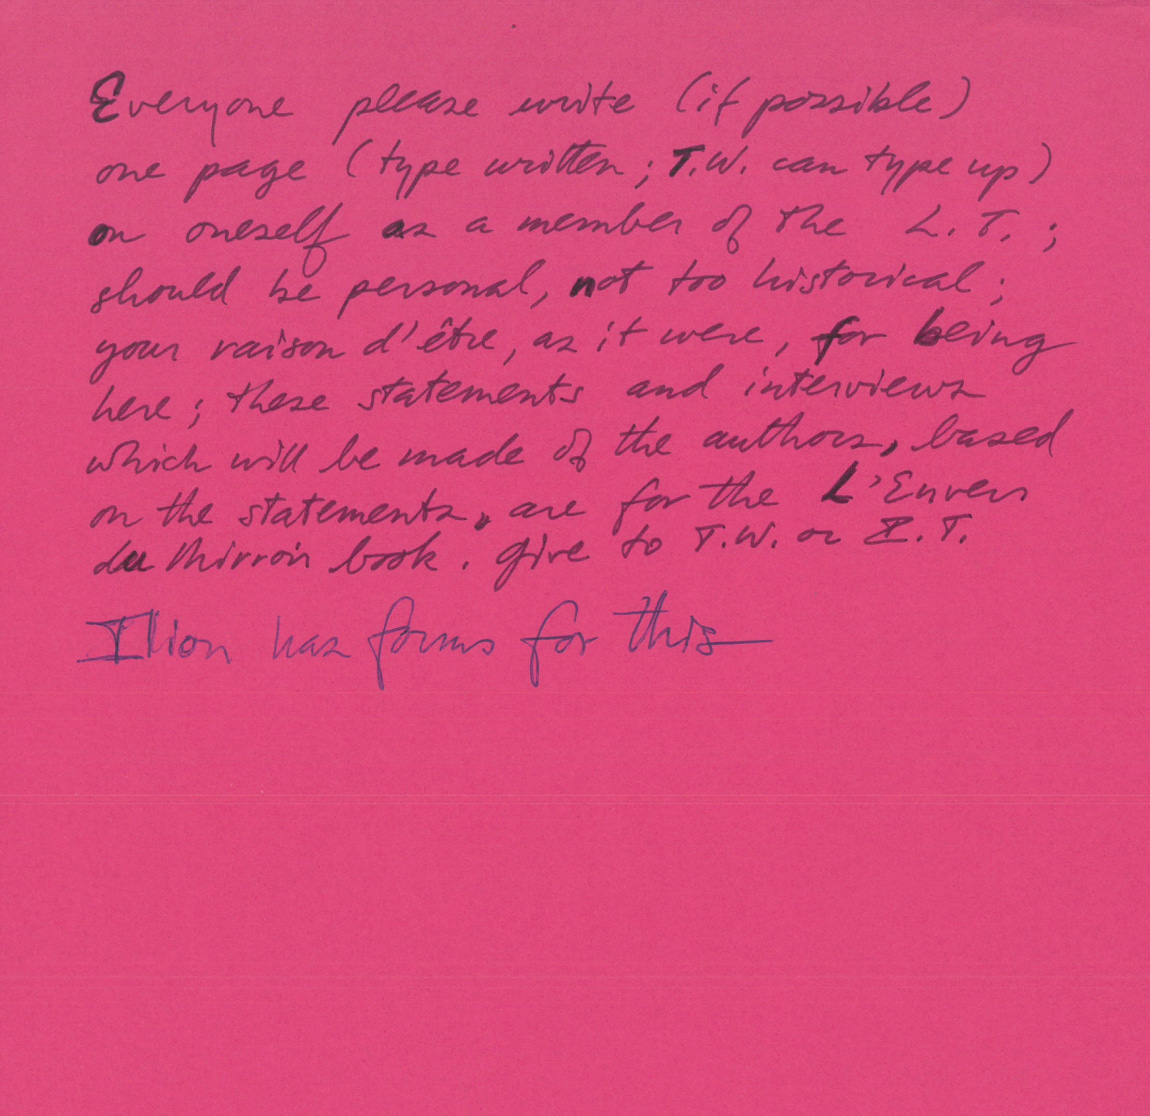 Everyone please write (if possible)
one page (type written; T.W. can type up)
on oneself as a member of the L.T.;
should be personal, not too historical;
your raison d'être, as it were, for being
here; these statements and interviews
which will be made of the authors, based
on the statements, are for the L'Envers
du Mirroir book. Give to T.W. or I.T.
Ilion has forms for this